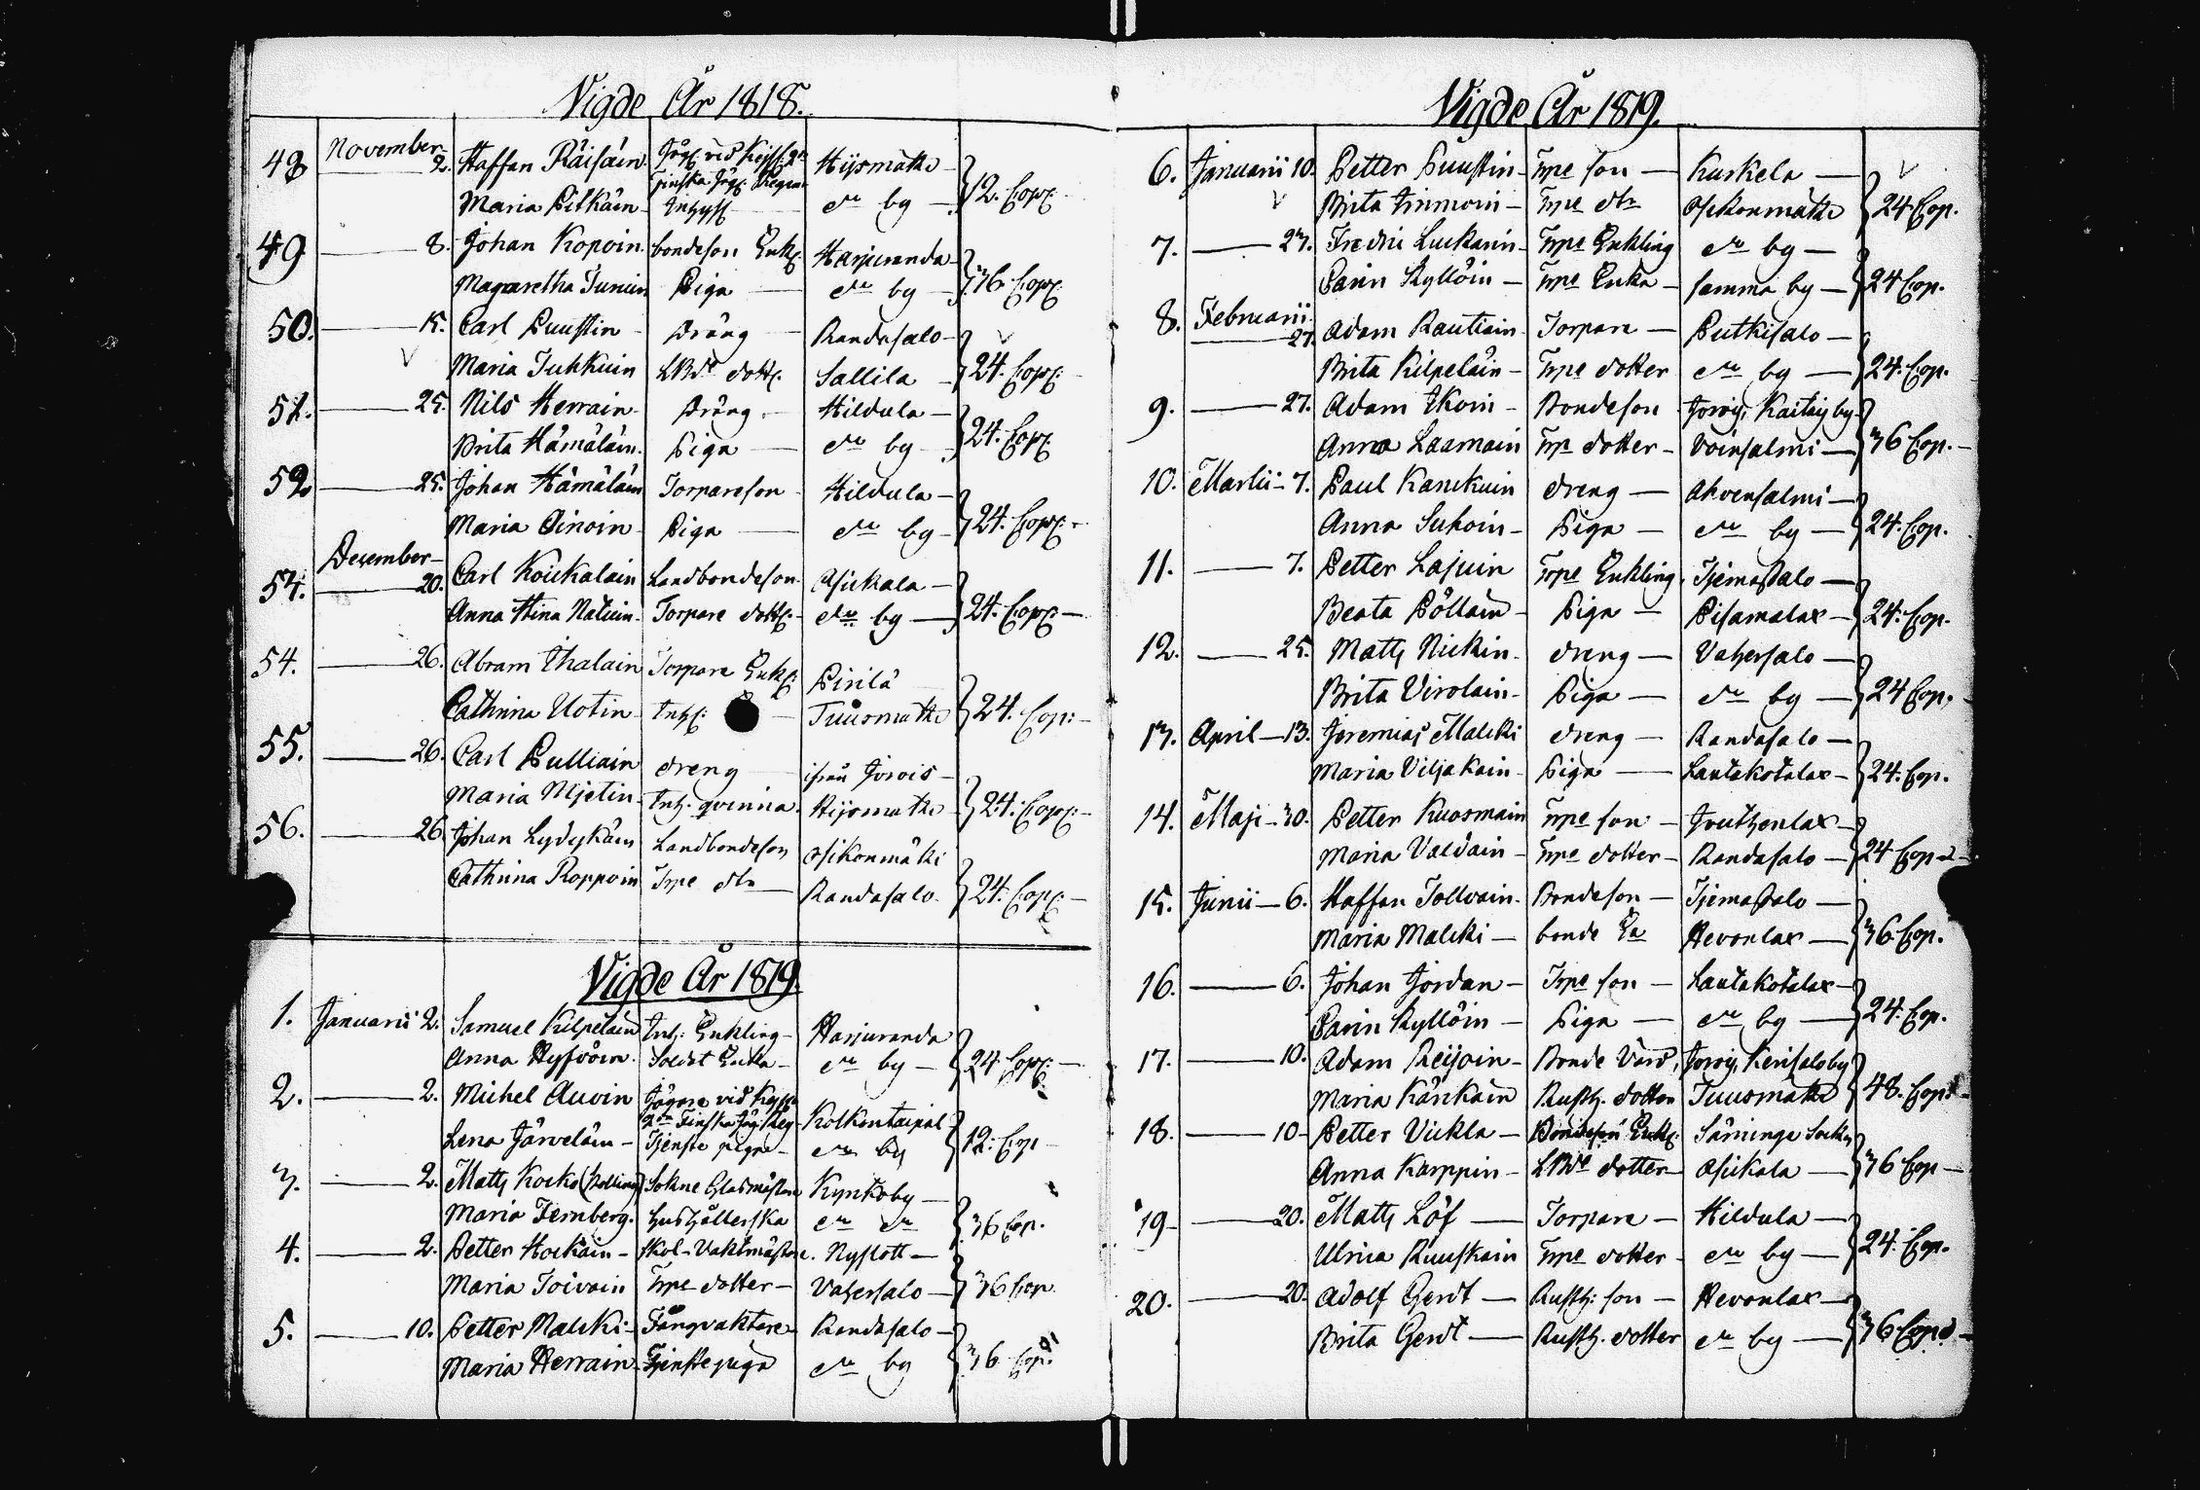 Vigde År 1818.
48 November 2. Staffan Räisäin Jäg. vid Kejs. 2dra Finska Jäg. Regim. Hijsmäki
Maria Pitkäin Inhys dito by 12. Cop.
49 8. Johan Kopoin bondeson Enkl. Harjuranda
Magaretha Tuniin Piga dito by 36 Cop.
50. 15. Carl Puustin Dräng Randasalo
Maria Tukkuin LBde dott. Sallila 24. Cop.
51. 25. Nils Herrain Dräng Hildula
Brita Hämäläin Piga dito by 24. Cop.
52 25. Johan Hämäläin Torpareson Hildula
Maria Ainoin Piga dito by 24. Cop.
December
54. 20. Carl Koikalain Landbondeson Asikkala
Anna Stina Natuin Torpare dott. dito by 24. Cop.
54. 26. Abram Ihalain Torpare Enkl. Pirilä
Cathrina Uotin Inh. Tuusmäki 24. Cop.
55. 26. Carl Pulliain dreng ifrån Jorois
Maria Mjetin Inh. qvinna Hijsmäki 24. Cop.
56. 26 Johan Lydykäin Landbondeson Osikonmäki
Cathrina Roppoin Trpe dtr Randasalo 24. Cop.
Vigde År 1819
1. Januarii 2. Samuel Kilpeläin Inh. Enkling Harjuranda
Anna Hyfvöin Soldt Enka dito by 24 Cop.
2. 2. Michel Auvin Jägare vid Kejs. 2dra Finska Jäg. Reg. Kolkontaipal
Lena Järveläin Tjenste piga dito by 12. Cop.
3. 2. Matts Kocko Sokne Glasmästare Kyrkoby
Maria Fernberg. hushållerska dito dito 36 Cop.
4. 2. Petter Hockain Skol-Vaktmästare. Nyslott
Maria Toivain Trpe dotter Vahersalo 36 Cop.
5. 10. Petter Malcki Fångvaktare Randasalo
Maria Herrain Tjenstepiga dito by 36 Cop.
Vigde År 1819.
6. Januarii 10. Petter Puustin Trpe son Kuskela
Brita Tinnoin Trpe dtr Osikonmäki 24 Cop.
7. 27. Fredric Luckarin Trpe Enkling dito by
Carin Kyllöin Trpe Enka samma by 24 Cop.
8. Februarii 27. Adam Rautiain Torpare Putkisalo
Brita Kilpeläin Trpe dotter dito by 24. Cop.
9. 27. Adam Ikoin Bondeson Jorois, Kaitais by
Anna Laamain Trp dotter Voinsalmi 36 Cop.
10. Martii 7. Paul Kanckuin dreng Ahvensalmi
Anna Suhoin Piga dito by 24. Cop.
11. 7. Petter Lajuin Trpe Enkling Tjemassalo
Beata Pölläin Piga Pisamalax 24. Cop.
12. 25. Matts Nickin dreng Vahersalo
Brita Virolain Piga dito by 24 Cop.
13. April 13. Jeremias Malcki dreng Randasalo
Maria Viljakain Piga Lautakotalax 24. Cop.
14. Maji 30. Petter Kuosmain Trpe son Jouthenlax
Maria Valdain Trpe dotter Randasalo 24 Cop.
15. Junii 6. Staffan Tollvain Bondeson Tjemassalo
Maria Malcki bonde Ea Hevonlax 36 Cop.
16. 6. Johan Jordan Trpe son Lautakotalax
Carin Kyllöin Piga dito by 24. Cop.
17. 10. Adam Reijoin Bonde Jorois, Kerisalo by
Maria Känkäin Rusth. dotter Tuusmäki 48. Cop.
18. 10 Petter Vickla Bondeson Enkl. Säminge Sockn
Anna Karppin LBde dotter Asikkala 36 Cop
19 20. Matts Löf Torpare Hildula
Ulrica Ruuskain Trpe dotter dito by 24. Cop.
20. 20. Adolf Gerdt Rusth. son Hevonlax
Brita Gerdt Rusth. dotter dito by 36 Cop.